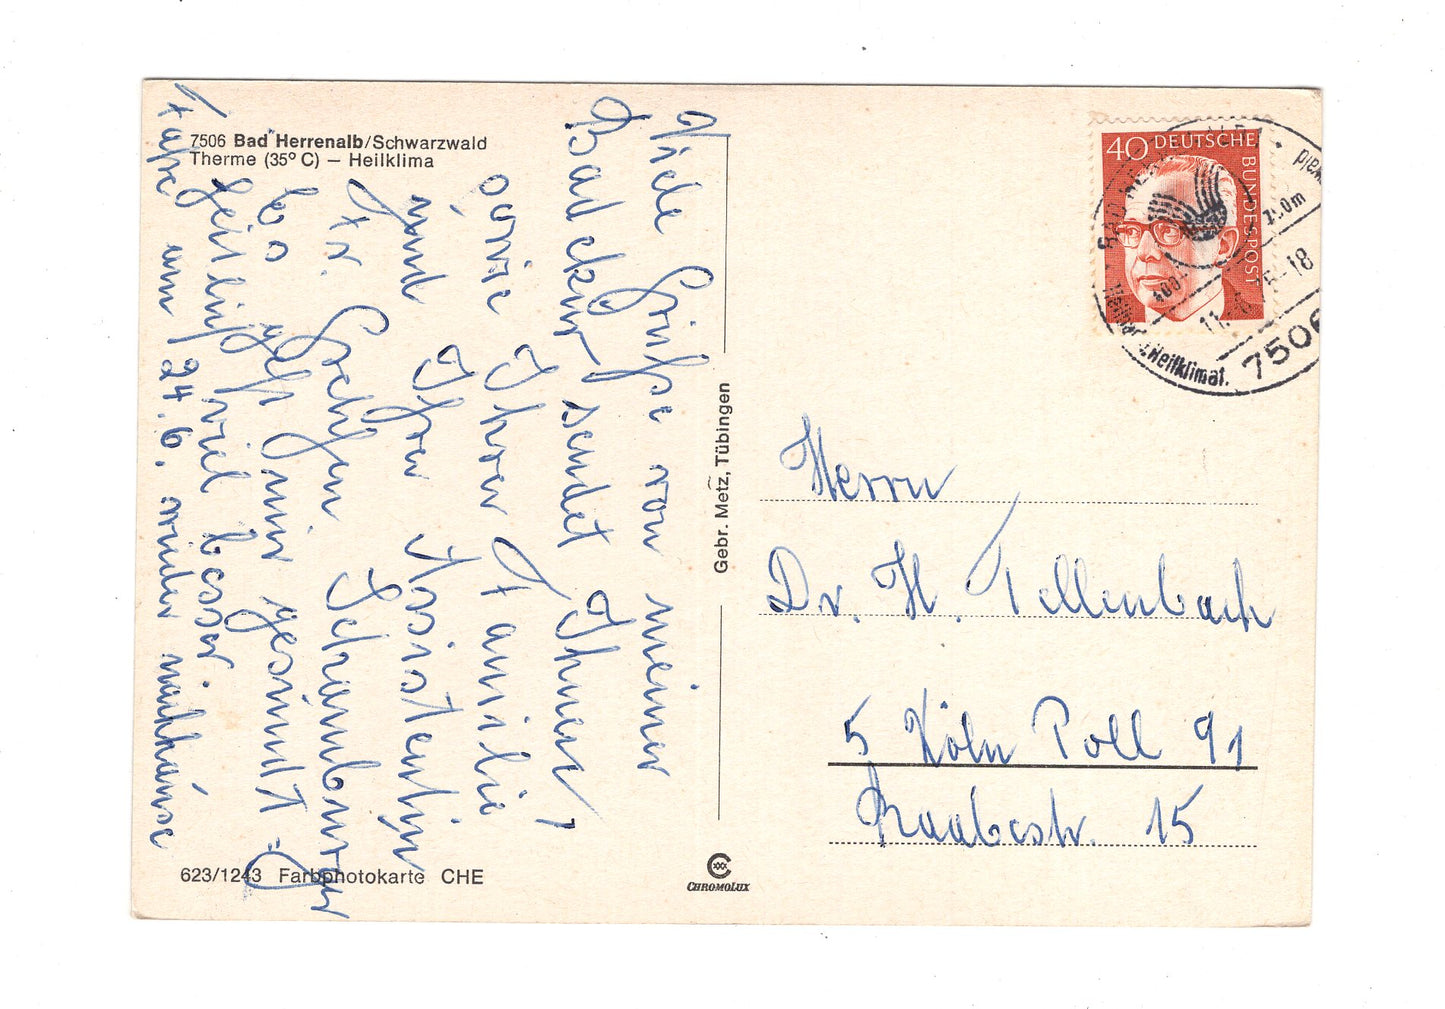 7506 Bad Herrenalb/Schwarzwald
Therme (35° C) – Heilklima
Viele Grüße von meiner
Badekur sendet Ihnen
sowie Ihrer Familie
und Ihrer Assistentin
Fr.
Es geht mir gesundheitl.
viel besser.
Fahre am 24.6. wieder nachhause
623/1243 Farbphotokarte CHE
Gebr. Metz, Tübingen
CHROMOLUX
40 DEUTSCHE
BUNDESPOST
BAD HERRENALB
Heilklimat.
7506
Herrn
Dr. H. Tellenbach
5 Köln Poll 91
Raabestr. 15